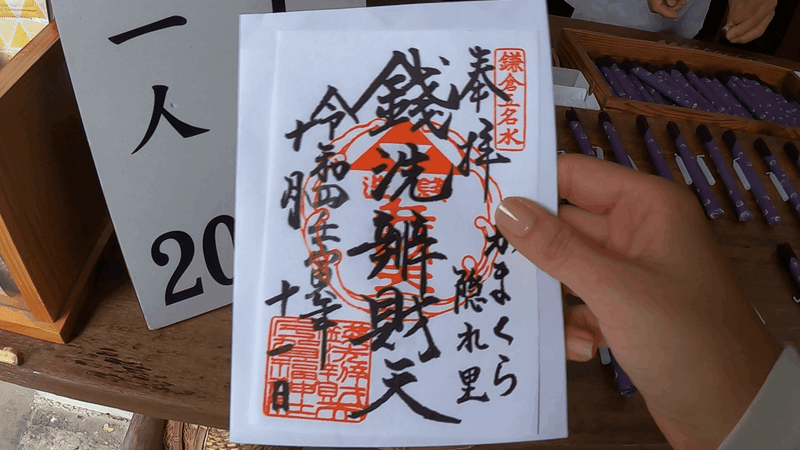 鎌倉五名水
奉拝
かまくら
隠れ里
錢洗辨財天
令和四壬寅年
十月
十一日
一人
20